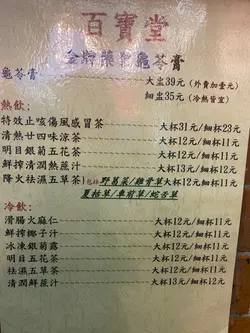 百寶堂
金牌龜苓膏
龜苓膏
大盅39元(外賣加壹元)
細盅35元(冷熱皆室)
熱飲:
特效止咳傷風感冒茶 大杯31元/細杯23元
清熱廿四味涼茶 大杯13元/細杯12元
明目銀菊五花茶 大杯12元/細杯11元
鮮搾清潤熱蔗汁 大杯13元/細杯12元
降火祛濕五草茶 包括 野葛菜/雞骨草 大杯12元/細杯11元
夏枯草/車前草/蛇舌草
冷飲:
滑腸火麻仁 大杯12元/細杯11元
鮮搾椰子汁 大杯12元/細杯11元
冰凍銀菊露 大杯12元/細杯11元
明目五花茶 大杯12元/細杯11元
祛濕五草茶 大杯12元/細杯11元
清潤鮮蔗汁 大杯13元/細杯12元